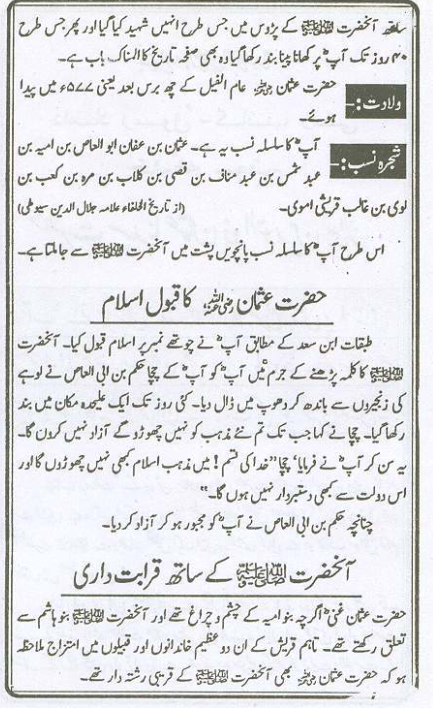 ساتھ آنحضرت ﷺ کے پڑوس میں جس طرح انہیں شہید کیا گیا اور پھر جس طرح
۴۰ روز تک آپؓ پر کھانا پینا بند رکھا گیا وہ بھی صفحہ تاریخ کا المناک باب ہے۔
ولادت:- حضرت عثمان رضی اللہ عنہ عام الفیل کے چھ برس بعد یعنی ۵۷۷ء میں پیدا
ہوئے۔
شجرہ نسب:- آپؓ کا سلسلہ نسب یہ ہے۔ عثمان بن عفان ابو العاص بن امیہ بن
عبد شمس بن عبد مناف بن قصی بن کلاب بن مرہ بن کعب بن
لوی بن غالب قریشی اموی۔ (از تاریخ الخلفاء علامہ جلال الدین سیوطی)
اس طرح آپؓ کا سلسلہ نسب پانچویں پشت میں آنحضرت ﷺ سے جا ملتا ہے۔
حضرت عثمان رضی اللہ عنہ کا قبول اسلام
طبقات ابن سعد کے مطابق آپؓ نے چوتھے نمبر پر اسلام قبول کیا۔ آنحضرت
ﷺ کا کلمہ پڑھنے کے جرم میں آپؓ کو آپؓ کے چچا حکم بن ابی العاص نے لوہے
کی زنجیروں سے باندھ کر دھوپ میں ڈال دیا۔ کئی روز تک ایک علیحدہ مکان میں بند
رکھا گیا۔ چچا نے کہا جب تک تم نئے مذہب کو نہیں چھوڑو گے آزاد نہیں کروں گا۔
یہ سن کر آپؓ نے فرمایا، چچا "خدا کی قسم! میں مذہب اسلام کبھی نہیں چھوڑوں گا اور
اس دولت سے کبھی دستبردار نہیں ہوں گا۔"
چنانچہ حکم بن ابی العاص نے آپؓ کو مجبور ہو کر آزاد کر دیا۔
آنحضرت ﷺ کے ساتھ قرابت داری
حضرت عثمان غنیؓ اگرچہ بنو امیہ کے چشم و چراغ تھے اور آنحضرت ﷺ بنو ہاشم سے
تعلق رکھتے تھے۔ تاہم قریش کے ان دو عظیم خاندانوں اور قبیلوں میں امتزاج ملاحظہ
ہو کہ حضرت عثمان رضی اللہ عنہ بھی آنحضرت ﷺ کے قریبی رشتہ دار تھے۔